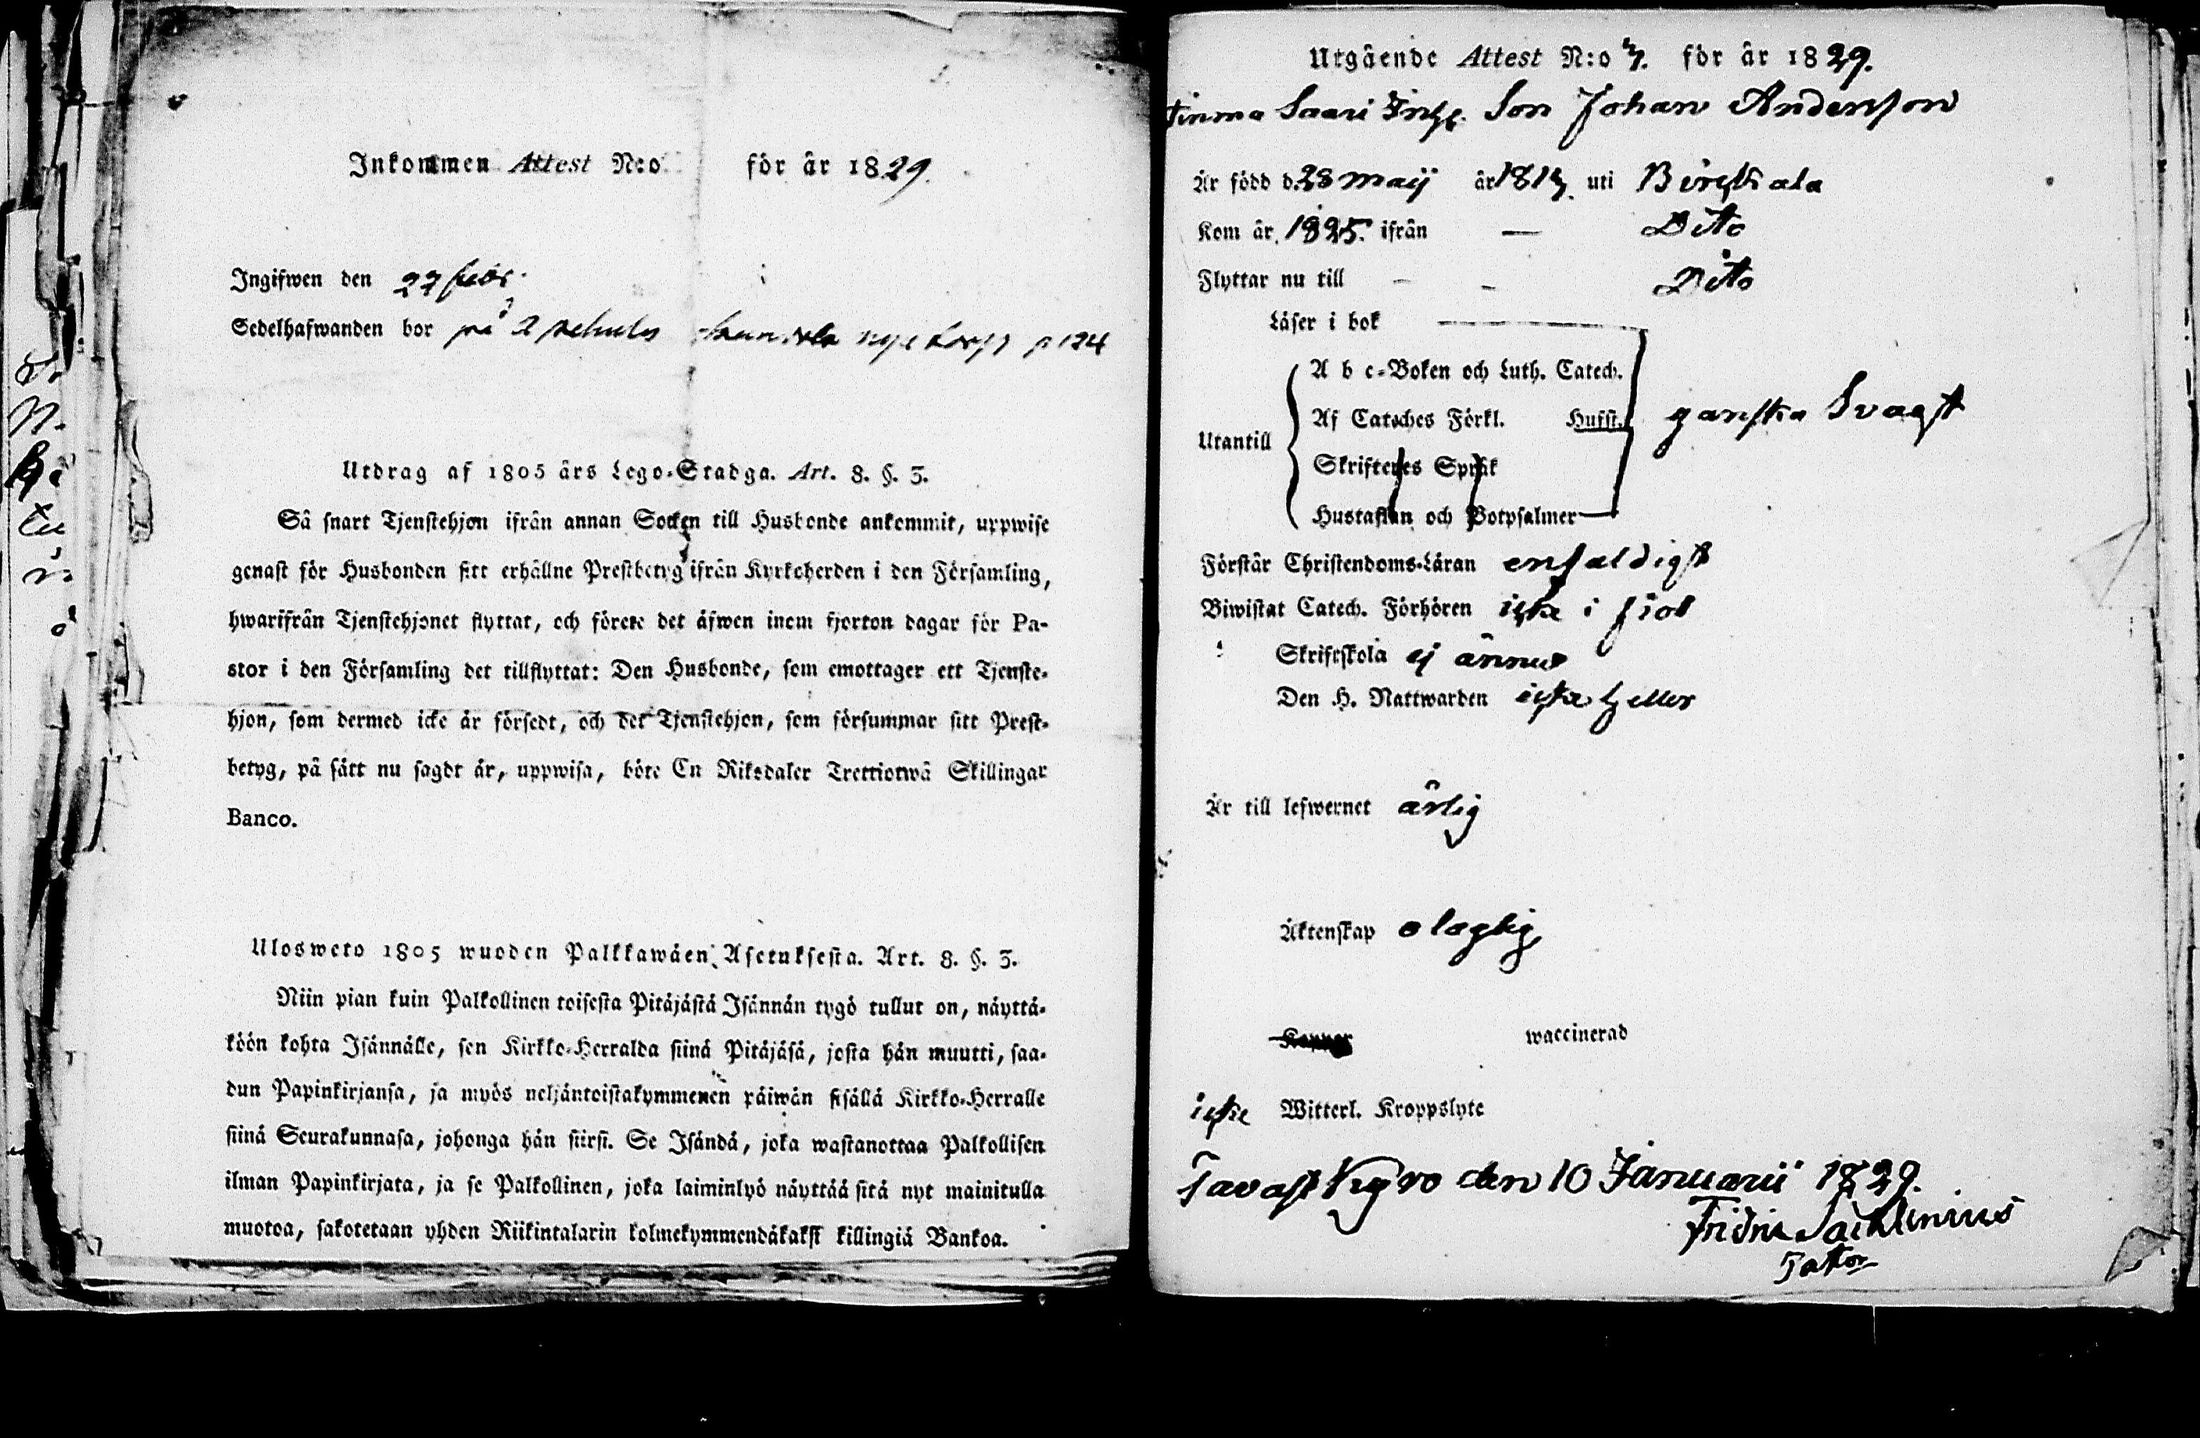 Inkommen Attest N:o för år 1829.
Ingifwen den 27 febr.
Sedelhafwanden bor på p 124
Utdrag af 1805 års Lego-Stadga. Art. 8. §. 3.
Så snart Tjenstehjon ifrån annan Socken till Husbonde ankommit, uppwise
genast för Husbonden sitt erhållne Prestbetyg ifrån Kyrkoherden i den Församling,
hwarifrån Tjenstehjonet flyttat, och förete det äfwen inom fjorton dagar för Pa-
stor i den Församling det tillflyttat: Den Husbonde, som emottager ett Tjenste-
hjon, som dermed icke är försedt, och det Tjenstehjon, som försummar sitt Prest-
betyg, på sätt nu sagdt är, uppwisa, böte En Riksdaler Trettiotwå Skillingar
Banco.
Ulosweto 1805 wuoden Palkkawäen Asetuksesta. Art. 8. §. 3.
Niin pian kuin Palkollinen toisesta Pitäjästä Isännän tygö tullut on, näyttä-
köön kohta Isännälle, sen Kirkko-Herralda siinä Pitäjäsä, josta hän muutti, saa-
dun Papinkirjansa, ja myös neljäntoistakymmenen päiwän sisällä Kirkko-Herralle
siinä Seurakunnasa, johonga hän siirsi. Se Isändä, joka wastanottaa Palkollisen
ilman Papinkirjata, ja se Palkollinen, joka laiminlyö näyttää sitä nyt mainitulla
muotoa, sakotetaan yhden Riikintalarin kolmekymmendäkaksi killingiä Bankoa.
Utgående Attest N:o 7. för år 1829.
Saari Inhs. Son Johan Andersson
Är född d. 28 maij år 181 uti
Kom år 1825. ifrån — Dito
Flyttar nu till - - Dito
Läser i bok
Utantill
A b c-Boken och Luth. Catech.
Af Cateches Förkl. Husst. ganska Svagt
Skriftenes Språk
Hustaflan och Botpsalmer
Förstår Christendoms-Läran enfaldigt
Biwistat Catech. Förhören icke i fiol
Skriftskola ej ännu
Den H. Nattwarden icke heller
Är till lefwernet ärlig
Äktenskap olaglig
Koppor waccinerad
icke Witterl. Kroppslyte
Tavast Kyro den 10 Januarii 1829.
Fridric Sacklinius
Pastor